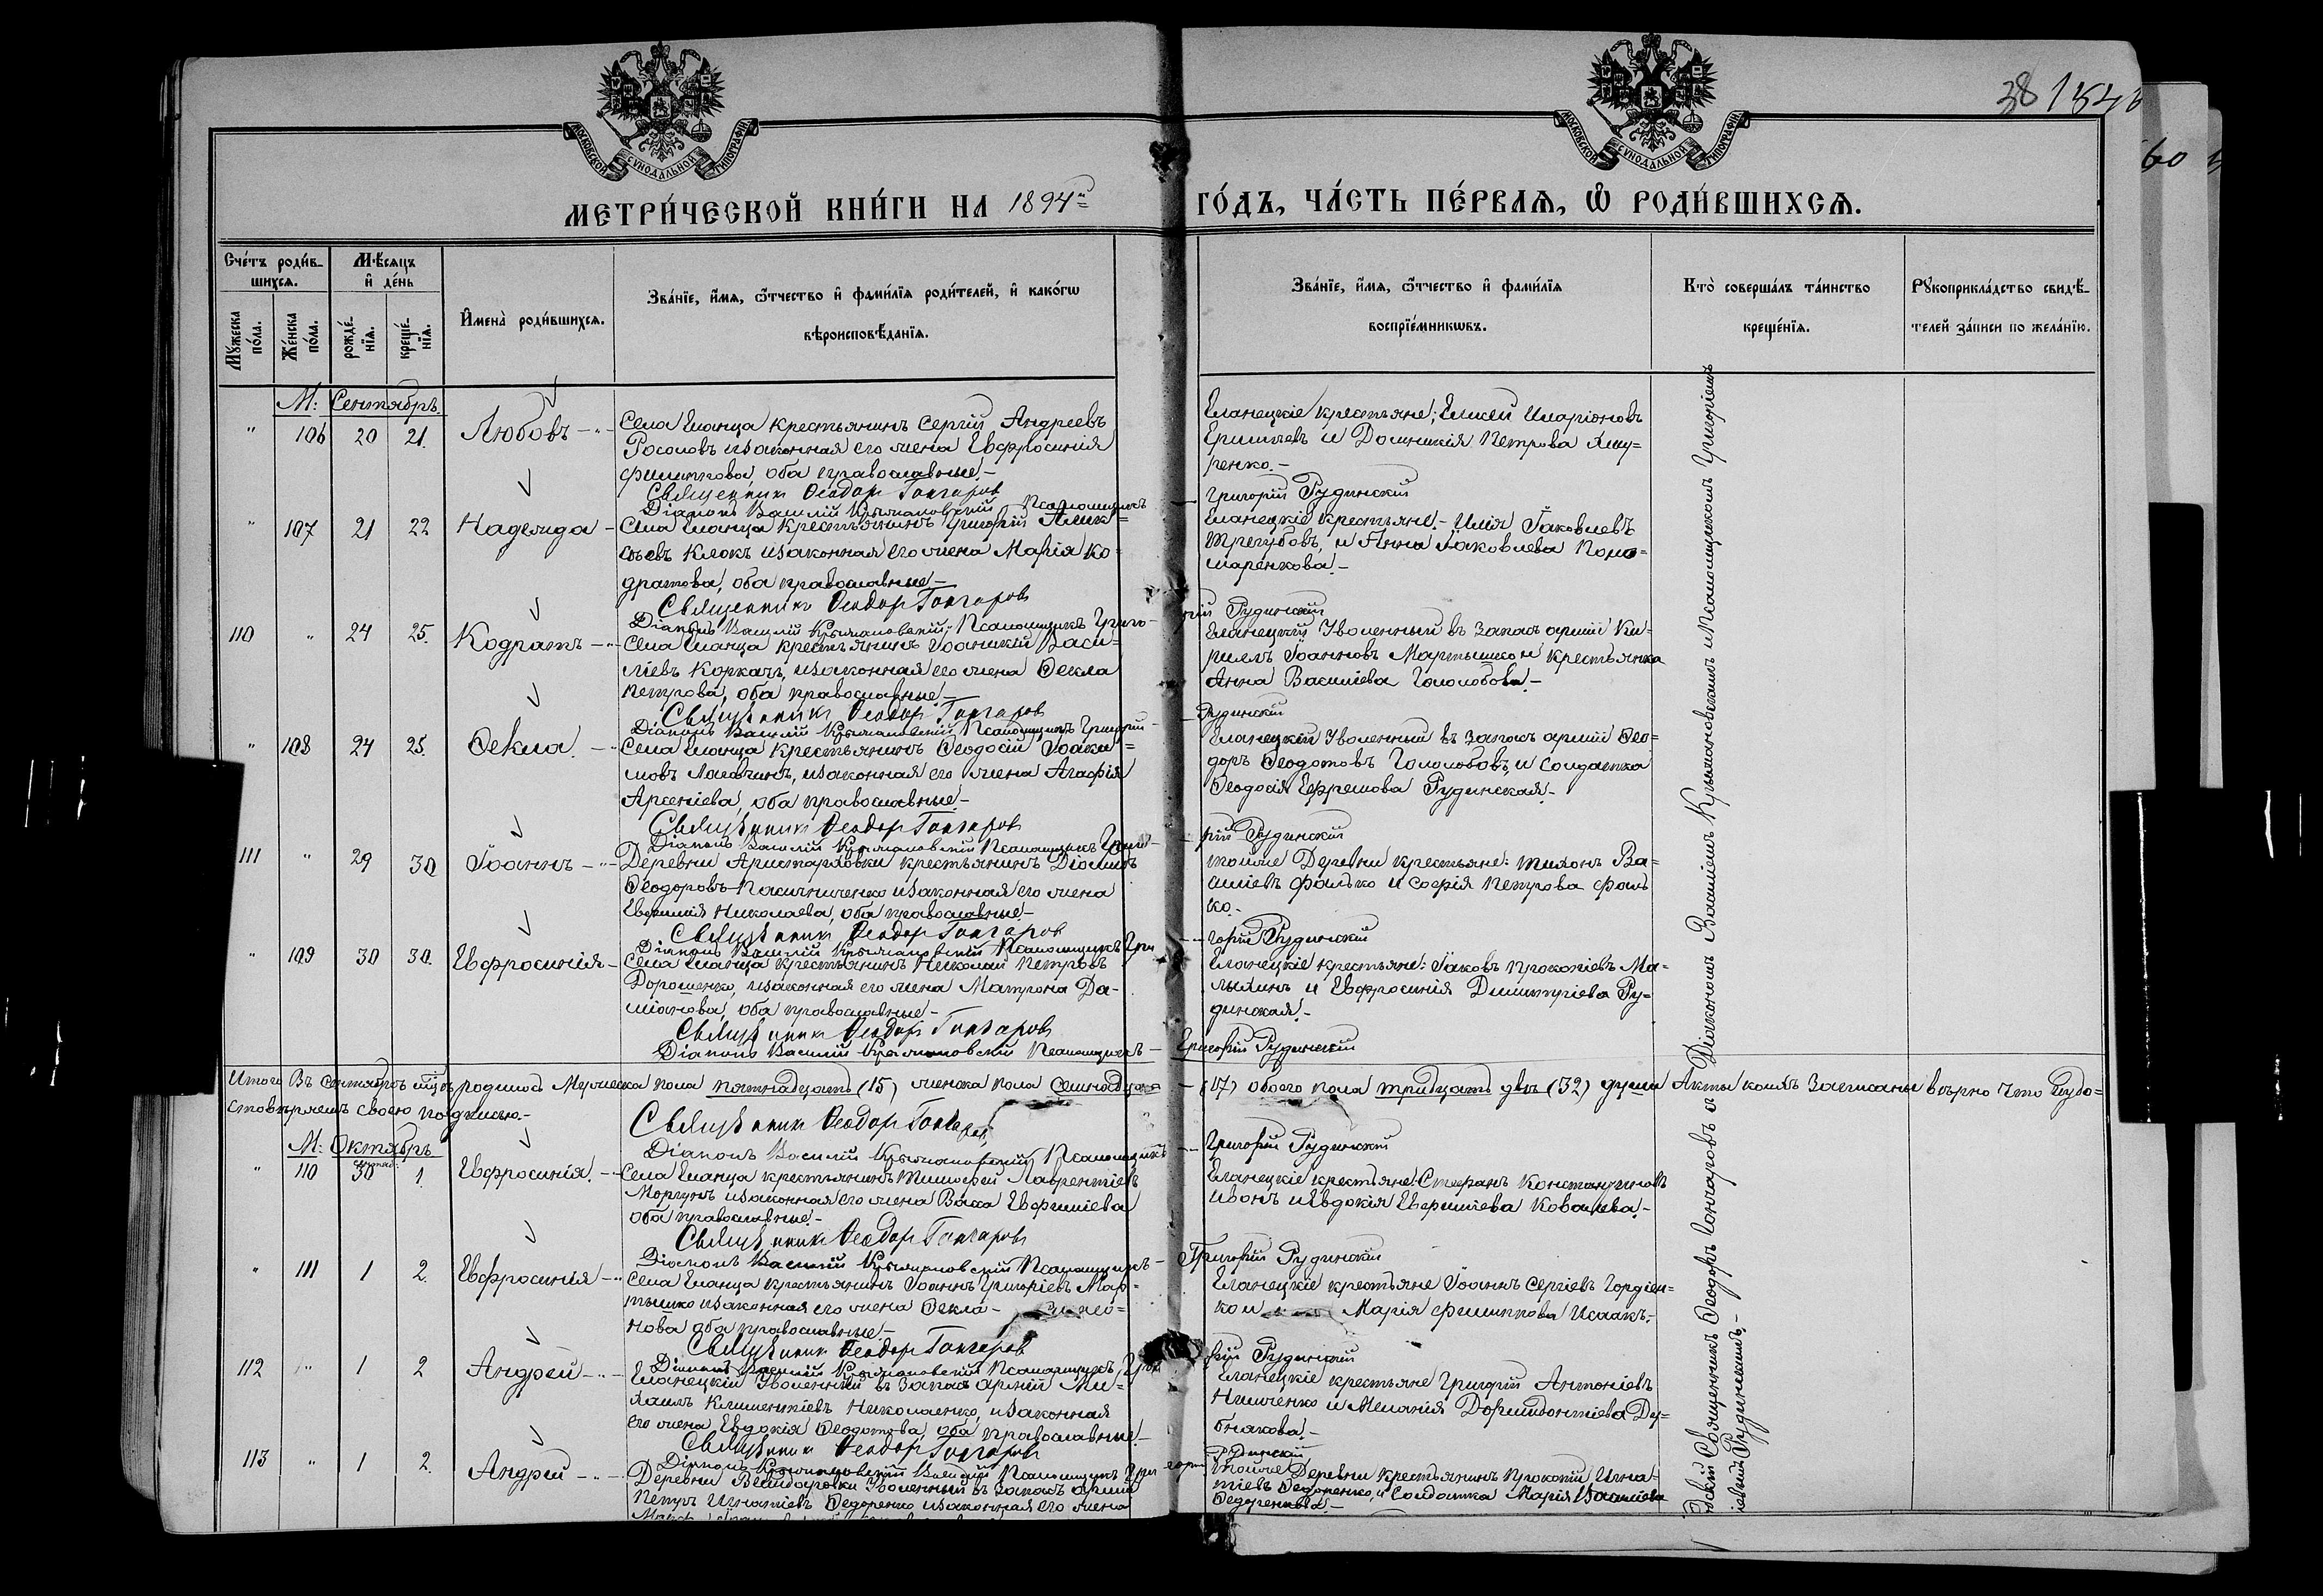 38
МОСКОВСКОЙ СѴНОДАЛЬНОЙ ТИПОГРАФІИ
МОСКОВСКОЙ СѴНОДАЛЬНОЙ ТИПОГРАФІИ
60
МЕТРИ́ЧЕСКОЙ КНИ́ГИ НА 1894й ГО́ДЪ, ЧА́СТЬ ПЕ́РВАѦ, Ѡ РОДИ́ВШИХСѦ.
Сче́тъ роди́в-
шихся.
Мѣ́сяцъ
и де́нь
Му́жеска
по́ла.
Же́нска
по́ла.
рожде́-
нїя.
креще́-
нїя.
Имена̀ роди́вшихся.
Зва́нїе, и́мя, ѻ́тчество и фами́лїя роди́телей, и како́гѡ
вѣроисповѣ́данїя.
Зва́нїе, и́мя, ѻ́тчество и фами́лїя
воспрїе́мникѡвъ.
Кто̀ соверша́лъ та́инство
креще́нїя.
Рꙋкоприкла́дство свидѣ́-
телей за́писи по жела́нїю.
М: Сентябрь
" 106 20 21. Любовь
Села Еланца крестьянинъ Сергій Андреевъ
Росоловъ и законная его жена Евфросинія
Филиппова, оба православные.-
Священникъ Ѳеодоръ Гончаровъ
Діаконъ Василій Крыжановскій Псаломщикъ
Еланецкіе крестьяне; Елисей Иларіоновъ
и Домникія Петрова Яку=
ренко.-
Григорій Рудинскій
" 107 21 22 Надежда
Села Еланца крестьянинъ Григорій Алек=
сѣевъ Клокъ и законная его жена Марія Ко=
дратова, оба православные.-
Священникъ Ѳеодоръ Гончаровъ
Діаконъ Василій Крыжановскій; Псаломщикъ Григо-
Еланецкіе крестьяне.- Илія Іаковлевъ
Трегубовъ, и Анна Іаковлева Поно=
маренкова.-
рій Рудинскій
110 " 24 25. Кодратъ
Села Еланца крестьянинъ Іоанникій Васи=
ліевъ Коркачъ, и законная его жена Ѳекла
Петрова, оба православные.-
Священникъ Ѳеодоръ Гончаровъ
Діаконъ Василій Крыжановскій Псаломщикъ Григорій
Еланецкій Уволенный въ запасъ арміи Ки=
риллъ Іоанновъ Мартышко и крестьянка
Анна Василіева Гололобова.-
Рудинскій
" 108 24 25. Ѳекла
Села Еланца крестьянинъ Ѳеодосій Іоаки=
мовъ и законная его жена Агафія
Арсеніева, оба православные.-
Священникъ Ѳеодоръ Гончаровъ
Діаконъ Василій Крыжановскій Псаломщикъ Григо-
Еланецкій Уволенный въ запасъ арміи Ѳео=
доръ Ѳеодотовъ Гололобовъ, и солдатка
Ѳеодосія Ефремова Рудинская.-
рій Рудинскій
111 " 29 30 Іоаннъ
Деревни Аристарховки крестьянинъ
Ѳеодоровъ Пасичниченко и законная его жена
Евфимія Николаева, оба православные.-
Священникъ Ѳеодоръ Гончаровъ
Діаконъ Василій Крыжановскій Псаломщикъ Гри
тойже Деревни крестьяне: Тихонъ Ва=
силіевъ Фалько и Софія Петрова Фаль
ко.-
горій Рудинскій
" 109 30 30. Евфросинія
Села Еланца крестьянинъ Николай Петровъ
Дорошенко, и законная его жена Матрона Да-
міанова, оба православные.-
Священникъ Ѳеодоръ Гончаровъ
Діаконъ Василій Крыжановскій Псаломщикъ
Еланецкіе крестьяне: Іаковъ Прокопіевъ Ма=
лыхинъ и Евфросинія Димитріева Ру=
динская.-
Григорій Рудинскій
Итого Въ Сентябрѣ мцѣ родилось Мужеска пола пятнадцать (15) женска пола семнадцать (17) обоего пола тридцать двѣ (32) души Акты коихъ записаны вѣрно что Удо=
стовѣряемъ своею подписью.-
Священникъ Ѳеодоръ Гончаровъ
Діаконъ Василій Крыжановскій Псаломщикъ Григорій Рудинскій
М: Октябрь
" 110 30 1. Евфросинія.
Села Еланца крестьянинъ Тимофей Лаврентіевъ
Моргунъ и законная его жена Васса Евфиміева
оба православные.-
Священникъ Ѳеодоръ Гончаровъ
Діаконъ Василій Крыжановскій Псаломщикъ
Еланецкіе крестьяне: Стефанъ Константиновъ
и Евдокія Евфиміева Ковалева.-
Григорій Рудинскій
" 111 1 2. Евфросинія
Села Еланца крестьянинъ Іоаннъ Григоріевъ Мар=
тышко и законная его жена Ѳекла
нова оба православные.-
Священникъ Ѳеодоръ Гончаровъ
Діаконъ Василій Крыжановскій Псаломщикъ Григо
Еланецкіе крестьяне Іоаннъ Сергіевъ Гордіен=
ко и Марія Филиппова Исаакъ.-
рій Рудинскій
112 " 1 2 Андрей
Еланецкій Уволенный въ запасъ арміи Ми=
хаилъ Климентіевъ Николаенко, и законная
его жена Евдокія Ѳеодотова, оба православные.-
Священникъ Ѳеодоръ Гончаровъ
Діаконъ Крыжановскій Василій Псаломщикъ Гри горій
Еланецкіе крестьяне Григорій Антоніевъ
Нимченко и Меланія Дормидонтіева Ду=
бнякова.-
Рудинскій
113 " 1 2. Андрей
Деревни Уволенный въ запасъ арміи
Петръ Игнатіевъ Ѳедоренко и законная его жена
тойже Деревни крестьянинъ Прокопій Игна=
тіевъ Ѳедоренко, и Солдатка Марія Василіева
Ѳедоренкова.-
Священникъ Ѳеодоръ Гончаровъ съ Діакономъ Василіемъ Крыжановскимъ и Псаломщикомъ Григоріемъ
Рудинскимъ.-